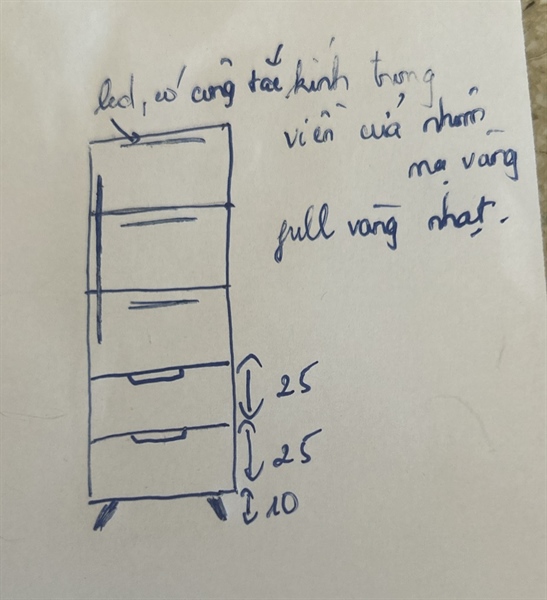 led, có công tắc, kính trong
viền cửa nhôm
mạ vàng
full vàng nhạt.
25
25
10